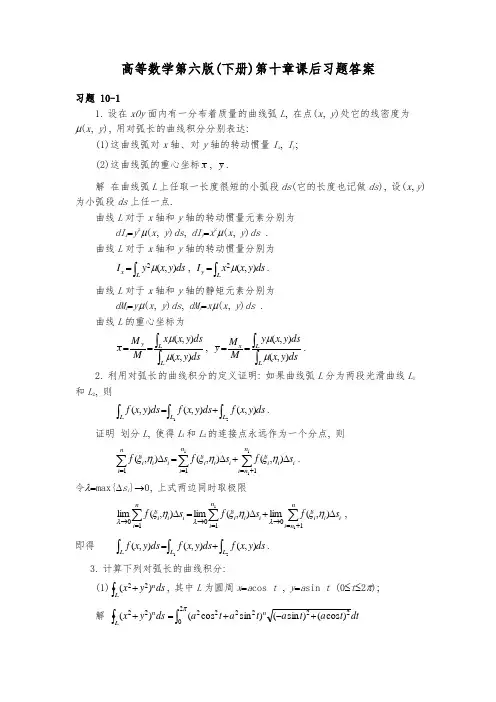 高等数学第六版(下册)第十章课后习题答案
习题 10-1
1. 设在xOy面内有一分布着质量的曲线弧L, 在点(x, y)处它的线密度为
μ(x, y), 用对弧长的曲线积分分别表达:
(1)这曲线弧对x轴、对y轴的转动惯量Iₓ, I_y;
(2)这曲线弧的重心坐标x̄, ȳ.
解 在曲线弧L上任取一长度很短的小弧段ds(它的长度也记做ds), 设(x, y)
为小弧段ds上任一点.
曲线L对于x轴和y轴的转动惯量元素分别为
dIₓ=y²μ(x, y)ds, dI_y=x²μ(x, y)ds .
曲线L对于x轴和y轴的转动惯量分别为
Iₓ=∫_L y²μ(x,y)ds, I_y=∫_L x²μ(x,y)ds.
曲线L对于x轴和y轴的静矩元素分别为
dMₓ=yμ(x, y)ds, dM_y=xμ(x, y)ds .
曲线L的重心坐标为
x̄=M_y/M=∫_L xμ(x,y)ds/∫_L μ(x,y)ds, ȳ=Mₓ/M=∫_L yμ(x,y)ds/∫_L μ(x,y)ds.
2. 利用对弧长的曲线积分的定义证明: 如果曲线弧L分为两段光滑曲线L₁
和L₂, 则
∫_L f(x,y)ds=∫_{L₁} f(x,y)ds+∫_{L₂} f(x,y)ds.
证明 划分L, 使得L₁和L₂的连接点永远作为一个分点, 则
∑_{i=1}^{n} f(ξᵢ,ηᵢ)Δsᵢ=∑_{i=1}^{n₁} f(ξᵢ,ηᵢ)Δsᵢ+∑_{i=n₁+1}^{n₁} f(ξᵢ,ηᵢ)Δsᵢ.
令λ=max{Δsᵢ}→0, 上式两边同时取极限
lim_{λ→0}∑_{i=1}^{n} f(ξᵢ,ηᵢ)Δsᵢ=lim_{λ→0}∑_{i=1}^{n₁} f(ξᵢ,ηᵢ)Δsᵢ+lim_{λ→0}∑_{i=n₁+1}^{n} f(ξᵢ,ηᵢ)Δsᵢ,
即得 ∫_L f(x,y)ds=∫_{L₁} f(x,y)ds+∫_{L₂} f(x,y)ds.
3. 计算下列对弧长的曲线积分:
(1)∮_L (x²+y²)ⁿds, 其中L为圆周x=acos t , y=asin t (0≤t≤2π);
解 ∮_L (x²+y²)ⁿds=∫₀^{2π}(a²cos²t+a²sin²t)ⁿ√((−asin t)²+(acos t)²)dt